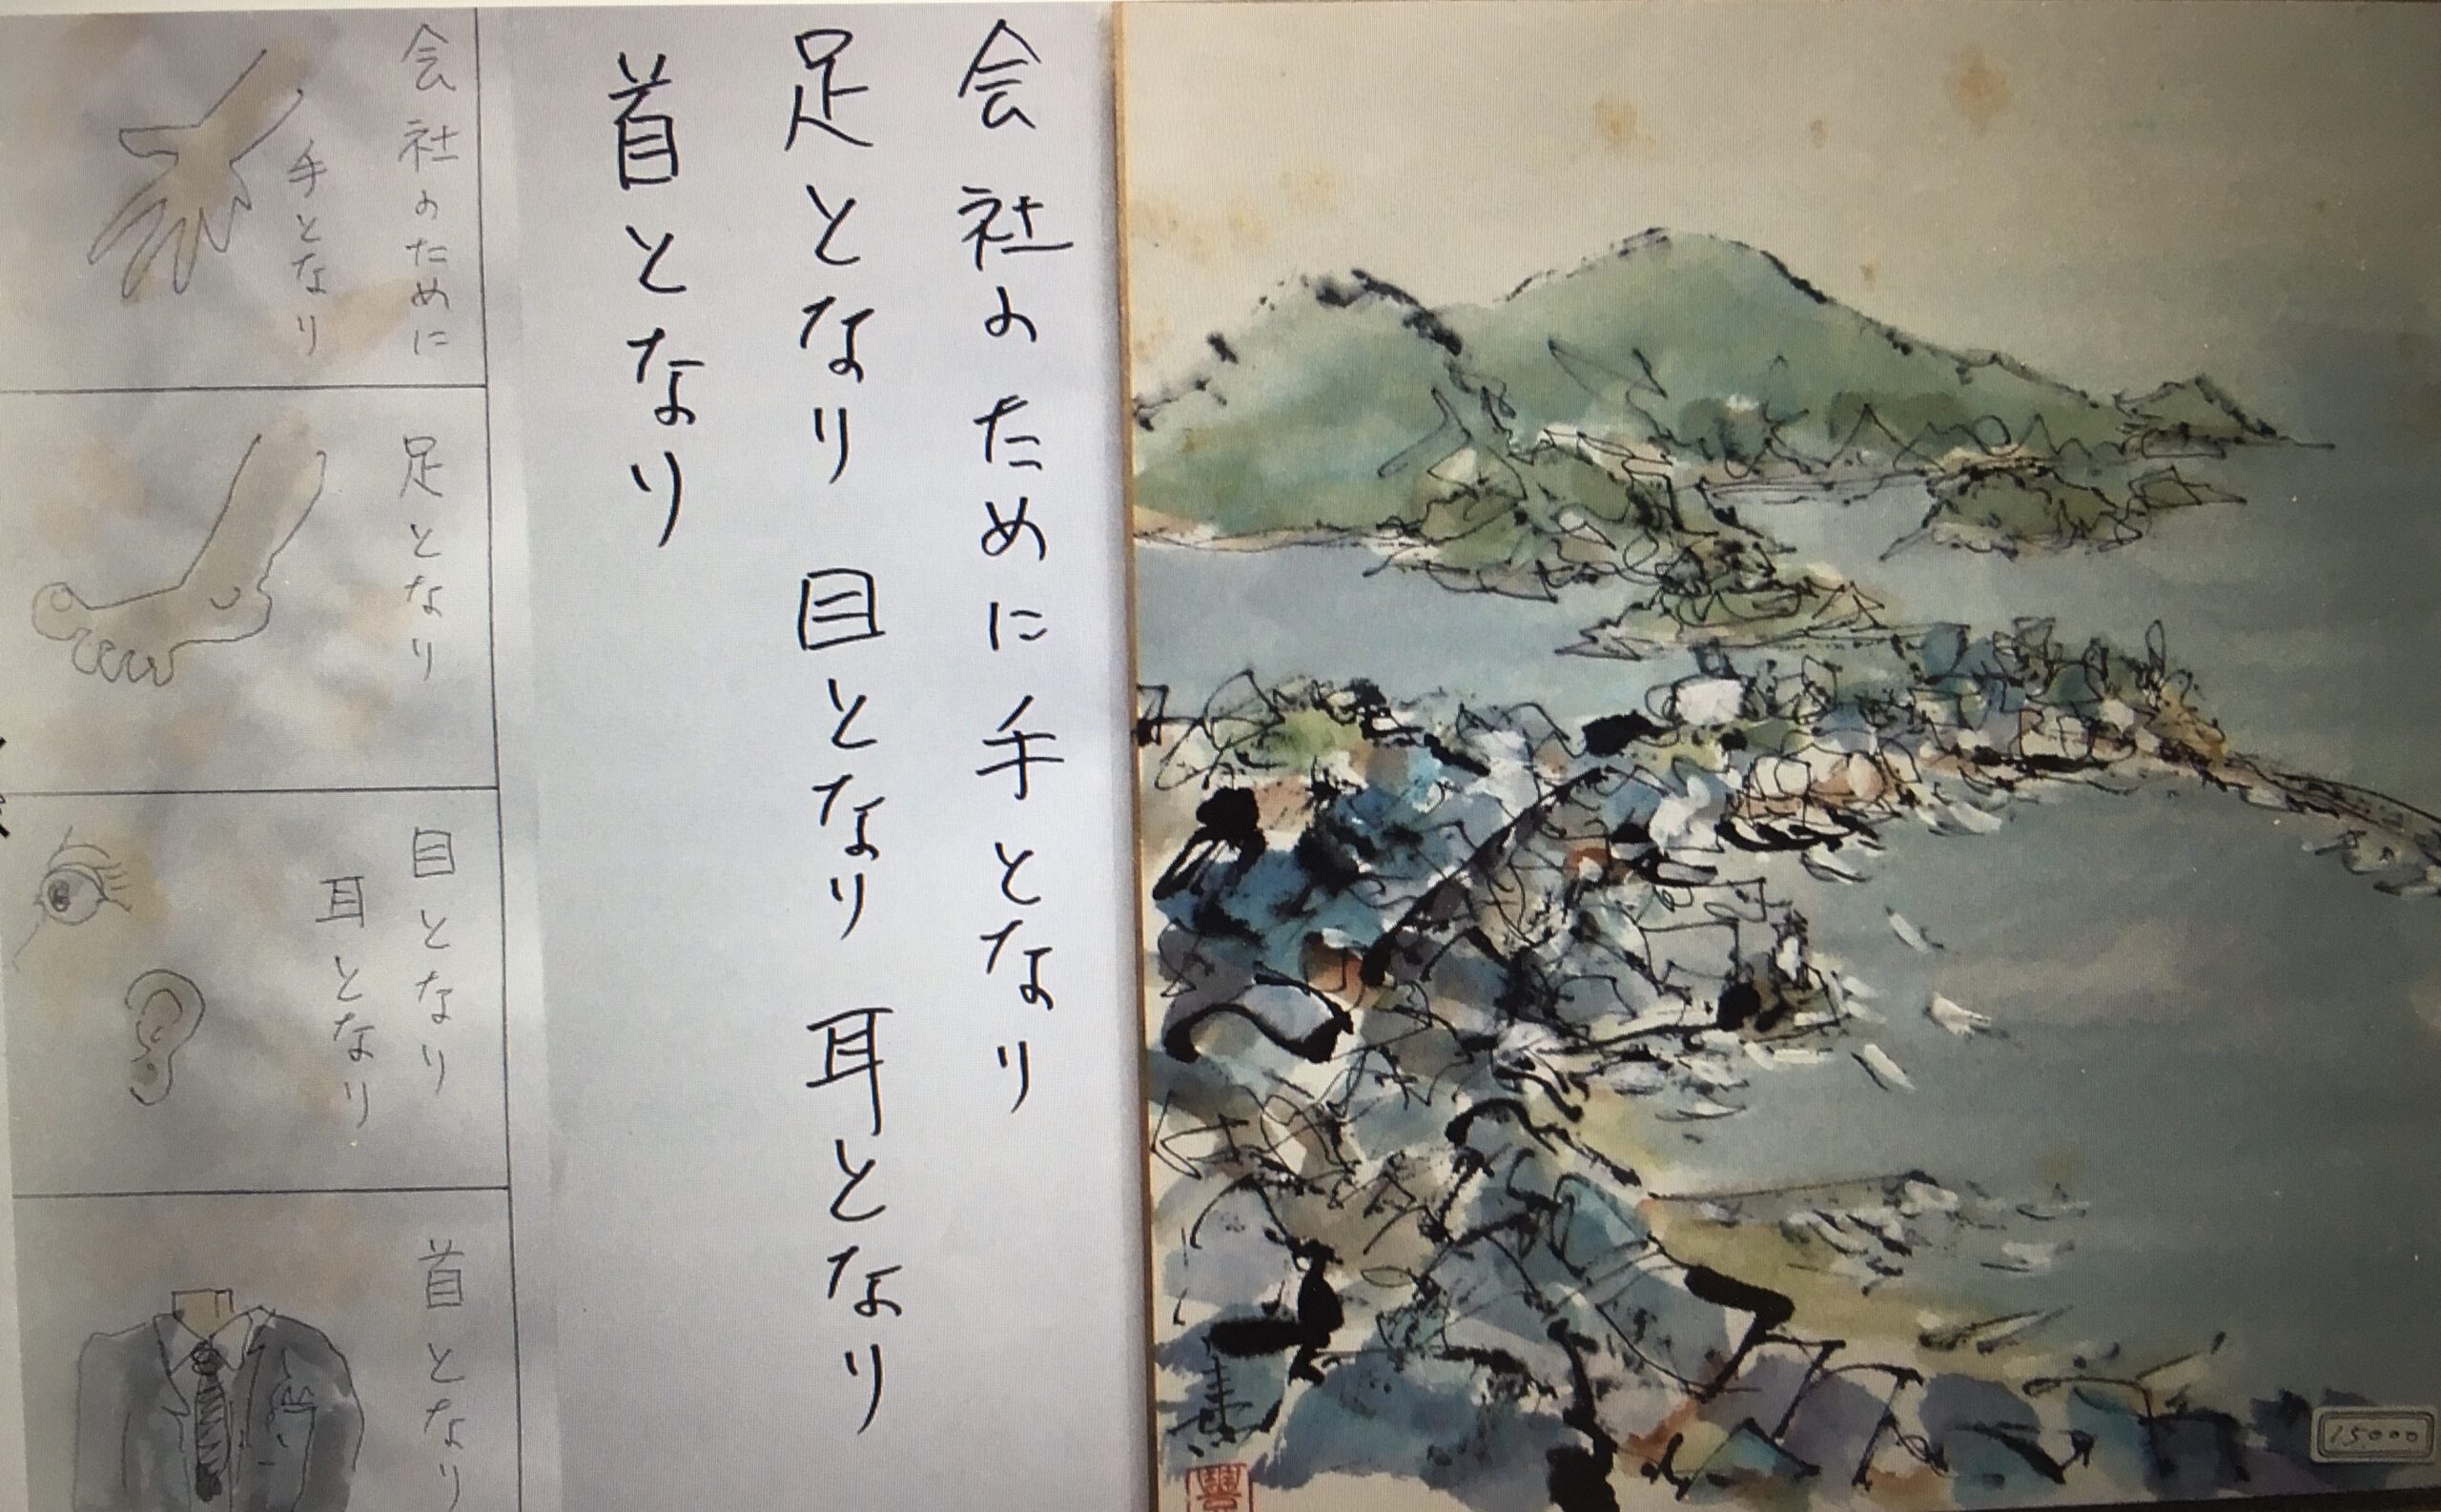 会社のために手となり
足となり 目となり 耳となり
首となり
会社のために
手となり
足となり
目となり
耳となり
首となり
15000